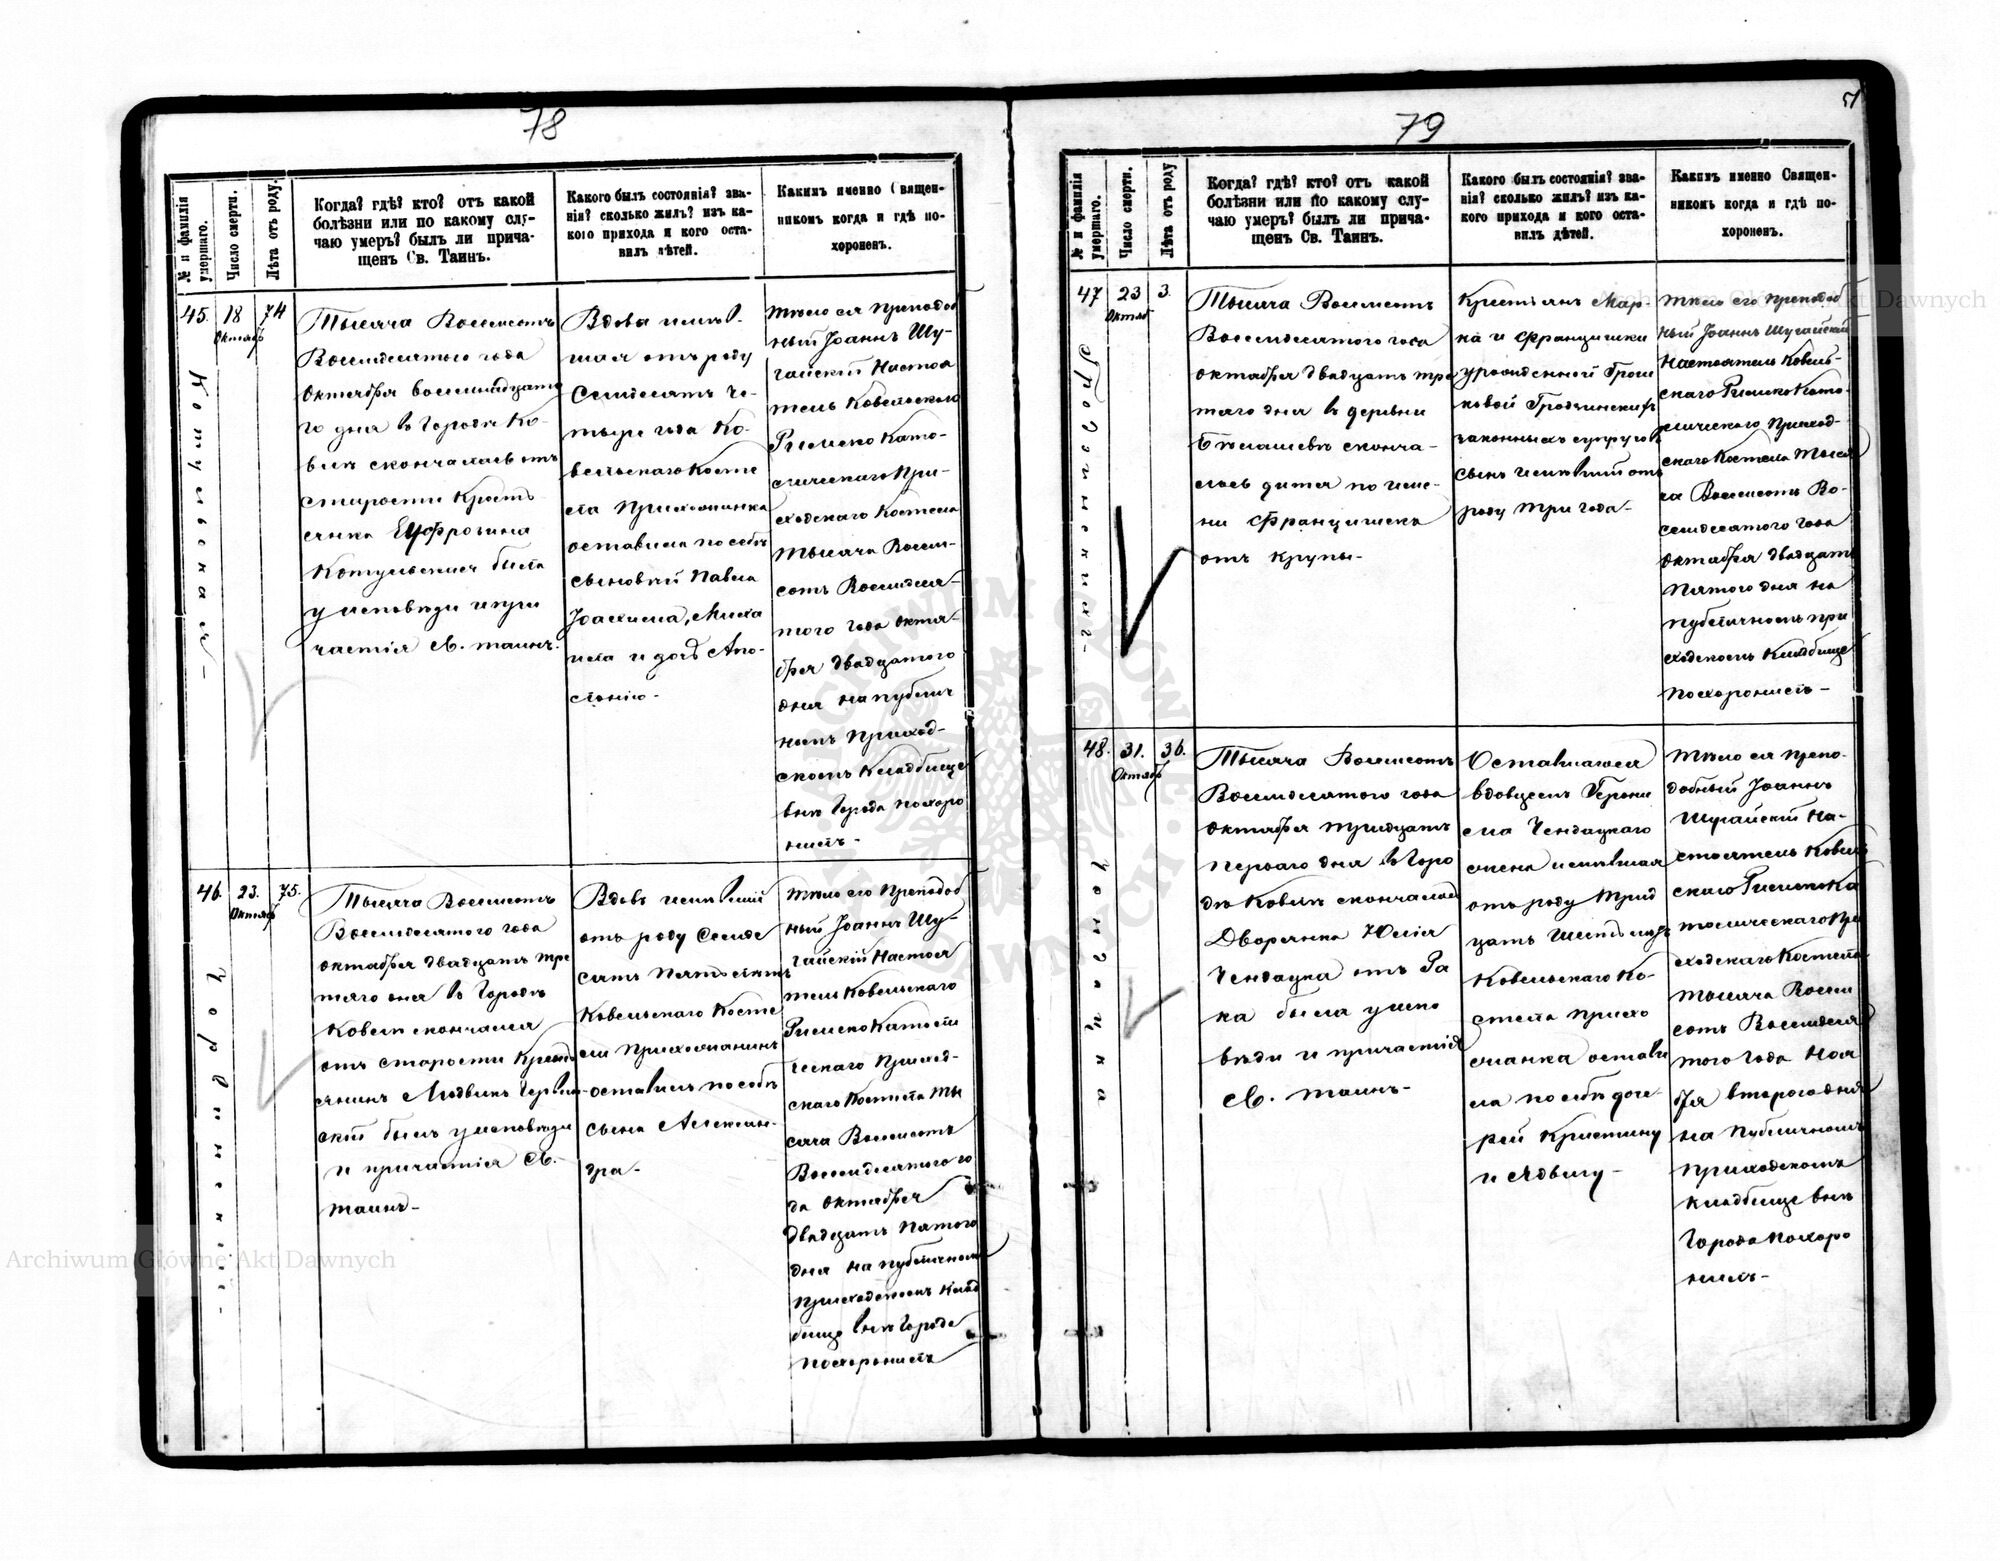 78
№ и фамилія умершаго.
Число смерти.
Лѣта отъ роду.
Когда? гдѣ? кто? отъ какой
болѣзни или по какому слу-
чаю умеръ? былъ ли прича-
щенъ Св. Таинъ.
Какого былъ состоянія? зва-
нія? сколько жилъ? изъ ка-
кого прихода и кого оста-
вилъ дѣтей.
Какимъ именно Священ-
никомъ когда и гдѣ по-
хороненъ.
45.
18
Октяб
74
Тысяча Восемсотъ
Восмидесятого года
Октября восемнадцата
го дня въ Городѣ Ко-
вле скончалась отъ
старости Кресть
янка
Котульская была
у исповѣди и при
частія Св. таинъ.
Вдова имѣв-
шая отъ роду
Семдесятъ че-
тыре года Ко-
вельскаго Косте
ла Прихожанка
оставила по себѣ
сыновей Павла
Іоахима, Миха
ила и дочь Апо-
лонію-
Тѣло ея Преподоб
ный Іоаннъ Шу-
гайскій Настоя
тель Ковельскаго
Римско Като-
лическаго При-
ходскаго Костела
Тысяча Восем-
сотъ Восмидеся-
того года Октя-
бря двадцатого
дня на публич
номъ Приход-
скомъ Кладбище
внѣ Города похоро
нилъ-
46.
23.
Октяб
75.
Тысяча Восемсотъ
Восмидесятого года
Октября двадцать тре
тяго дня въ Городѣ
Ковлѣ скончался
отъ старости Кресть
янинъ Людвикъ
скій былъ у исповѣди
и причастія Св.
таинъ-
Вдовъ имѣвшій
отъ роду Семде
сятъ Пять лѣтъ
Ковельскаго Косте
ла Прихожанинъ
оставилъ по себѣ
сына Алексан-
дра-
Тѣло его Преподоб
ный Іоаннъ Шу-
гайскій Настоя
тель Ковельскаго
Римско Католи
ческаго Приход-
скаго Костела Ты
сяча Восемсотъ
Восмидесятого го
да Октября
двадцать Пятого
дня на публичномъ
Приходскомъ Клад
бище внѣ Города
похоронилъ
79
№ и фамилія умершаго.
Число смерти.
Лѣта отъ роду
Когда? гдѣ? кто? отъ какой
болѣзни или по какому слу-
чаю умеръ? былъ ли прича-
щенъ Св. Таинъ.
Какого былъ состоянія? зва-
нія? сколько жилъ? изъ ка-
кого прихода и кого оста-
вилъ дѣтей.
Какимъ именно Священ-
никомъ когда и гдѣ по-
хороненъ.
47
23
Октяб
3.
Тысяча Восемсотъ
Восмидесятого года
Октября двадцать тре
тяго дня въ деревни
скончa-
лось дитя по име-
ни Францишекъ
отъ крупы-
Крестьянъ Мар-
ка и Францишки
урожденной
законныхъ супруговъ
сынъ имѣвшій отъ
роду три года-
Тѣло его Преподоб
ный Іоаннъ Шугайскій
Настоятель Ковель-
скаго Римско Като-
лическаго Приход-
скаго Костела Тыся
ча Восемсотъ Во-
семдесятого года
Октября двадцать
Пятого дня на
публичномъ при
ходскомъ Кладбище
Похоронилъ-
48.
31.
Октяб
36.
Тысяча Восемсотъ
Восмидесятого года
Октября тридцать
Перваго дня въ Горо
дѣ Ковлѣ скончалась
Дворянка Юлія
Чендацка отъ Ра
ка была у испо
вѣди и причастія
Св. таинъ-
Оставшагося
вдовцемъ Герони
ма Чендацкаго
жена имѣвшая
отъ роду Трид
цать Шесть лѣтъ
Ковельскаго Ко-
стела прихо
жанка остави
ла по себѣ доче-
рей Кристину
и Ядвигу-
Тѣло ея Препо-
добный Іоаннъ
Шугайскій На-
стоятель Ковель
скаго Римско Ка
толическаго При
ходскаго Костела
Тысяча Восем
сотъ Восмидеся
того года Ноя
бря втораго дня
на Публичномъ
Приходскомъ
Кладбище внѣ
Города похоро
нилъ-
Archiwum Główne Akt Dawnych
Archiwum Główne Akt Dawnych
ARCHIWUM GŁÓWNE AKT DAWNYCH